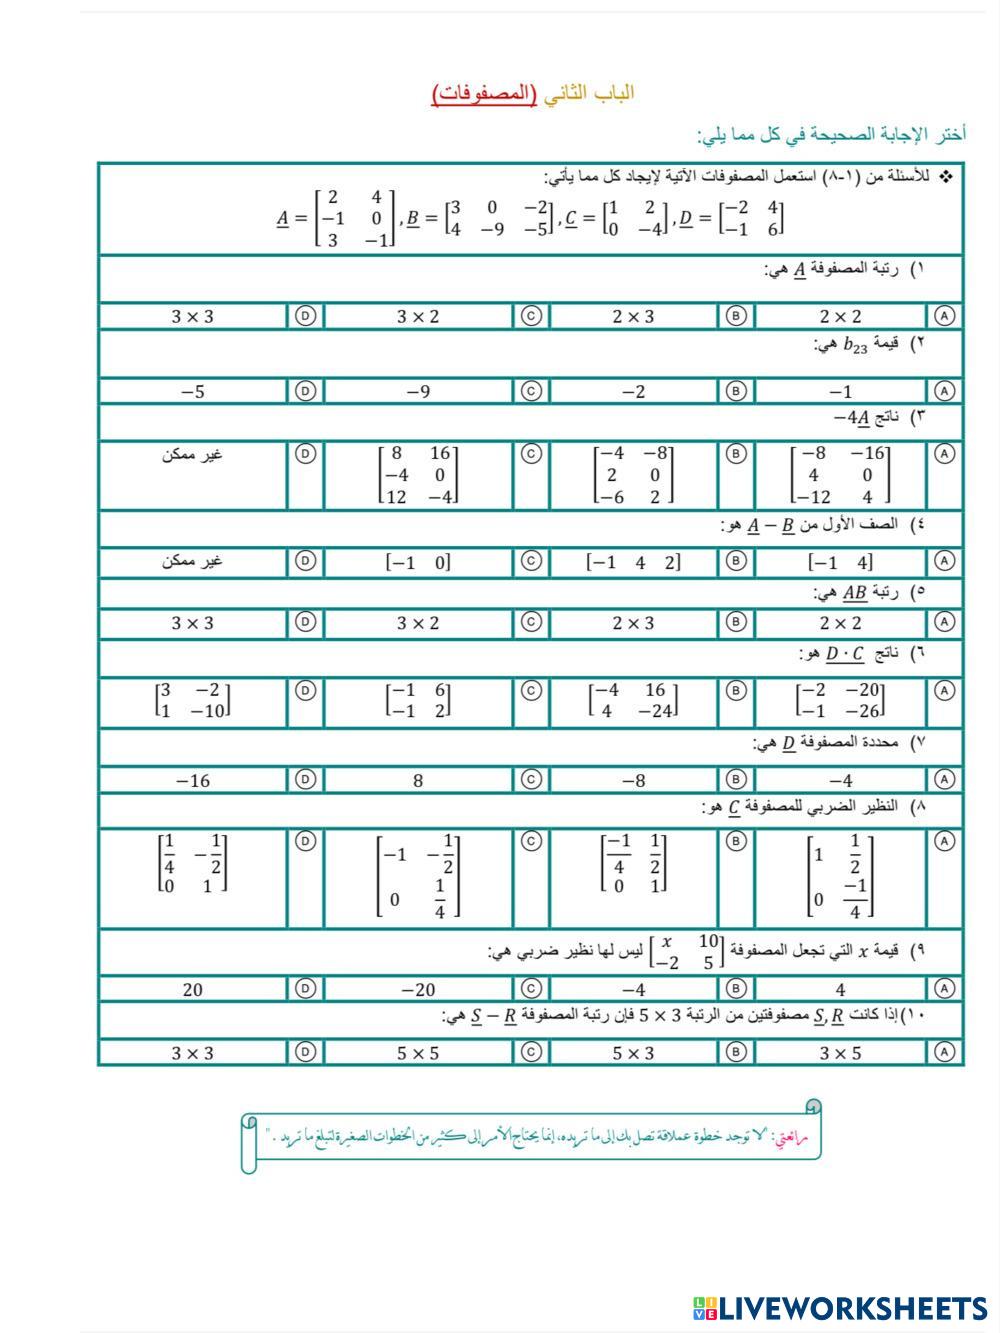 الباب الثاني (المصفوفات)
أختر الإجابة الصحيحة في كل مما يلي:
❖ للأسئلة من (١-٨) استعمل المصفوفات الآتية لإيجاد كل مما يأتي:
A = [2 4; −1 0; 3 −1], B = [3 0 −2; 4 −9 −5], C = [1 2; 0 −4], D = [−2 4; −1 6]
١) رتبة المصفوفة A هي:
A 2 × 2 B 2 × 3 C 3 × 2 D 3 × 3
٢) قيمة b₂₃ هي:
A −1 B −2 C −9 D −5
٣) ناتج −4A
A [−8 −16; 4 0; −12 4] B [−4 −8; 2 0; −6 2] C [8 16; −4 0; 12 −4] D غير ممكن
٤) الصف الأول من A − B هو:
A [−1 4] B [−1 4 2] C [−1 0] D غير ممكن
٥) رتبة AB هي:
A 2 × 2 B 2 × 3 C 3 × 2 D 3 × 3
٦) ناتج D · C هو:
A [−2 −20; −1 −26] B [−4 16; 4 −24] C [−1 6; −1 2] D [3 −2; 1 −10]
٧) محددة المصفوفة D هي:
A −4 B −8 C 8 D −16
٨) النظير الضربي للمصفوفة C هو:
A [1 1/2; 0 −1/4] B [−1/4 1/2; 0 1] C [−1 −1/2; 0 1/4] D [1/4 −1/2; 0 1]
٩) قيمة x التي تجعل المصفوفة [x 10; −2 5] ليس لها نظير ضربي هي:
A 4 B −4 C −20 D 20
١٠) إذا كانت S, R مصفوفتين من الرتبة 5 × 3 فإن رتبة المصفوفة S − R هي:
A 3 × 5 B 5 × 3 C 5 × 5 D 3 × 3
رائعتي: "لا توجد خطوة عملاقة تصل بك إلى ما تريده، إنما يحتاج الأمر إلى كثير من الخطوات الصغيرة لتبلغ ما تريد . "
LIVE LIVEWORKSHEETS